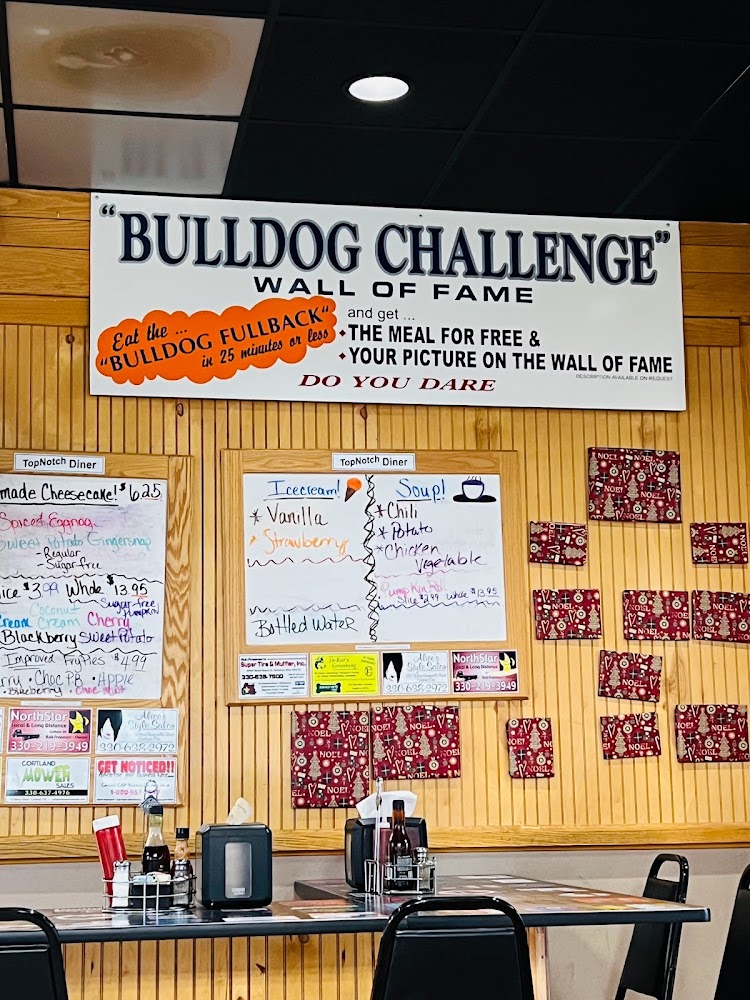 "BULLDOG CHALLENGE"
WALL OF FAME
Eat the ...
"BULLDOG FULLBACK"
in 25 minutes or less
and get ...
THE MEAL FOR FREE &
YOUR PICTURE ON THE WALL OF FAME
DESCRIPTION AVAILABLE ON REQUEST
DO YOU DARE
TopNotch Diner
made Cheesecake! $6.25
Spiced Eggnog
Sweet Potato Gingersnap
- Regular
- Sugar free
ice $3.99 Whole $13.95
Sugar-free
Pumpkin
Cream Coconut Cream Cherry
Blackberry Sweet Potato
Improved Fry Pies $4.99
rry · Choc PB · Apple
· Blueberry ·
NorthStar
Local & Long Distance
Rob Freeman - Owner
330-219-3949
Alice's
Style Salon
330-638-2972
CORTLAND
MOWER
SALES
330-637-4976
GET NOTICED!!
TopNotch Diner
Icecream!
* Vanilla
* Strawberry
Bottled Water
Soup!
* Chili
* Potato
* Chicken
Vegetable
Pumpkin Roll
Slice $2.99 Whole $13.95
Super Tire & Muffler, Inc.
330-638-7500
Alice's
Style Salon
330-638-2972
NorthStar
Local & Long Distance
330-219-3949
NOEL
NOEL
NOEL
NOEL
NOEL
NOEL
NOEL
NOEL
NOEL
NOEL
NOEL